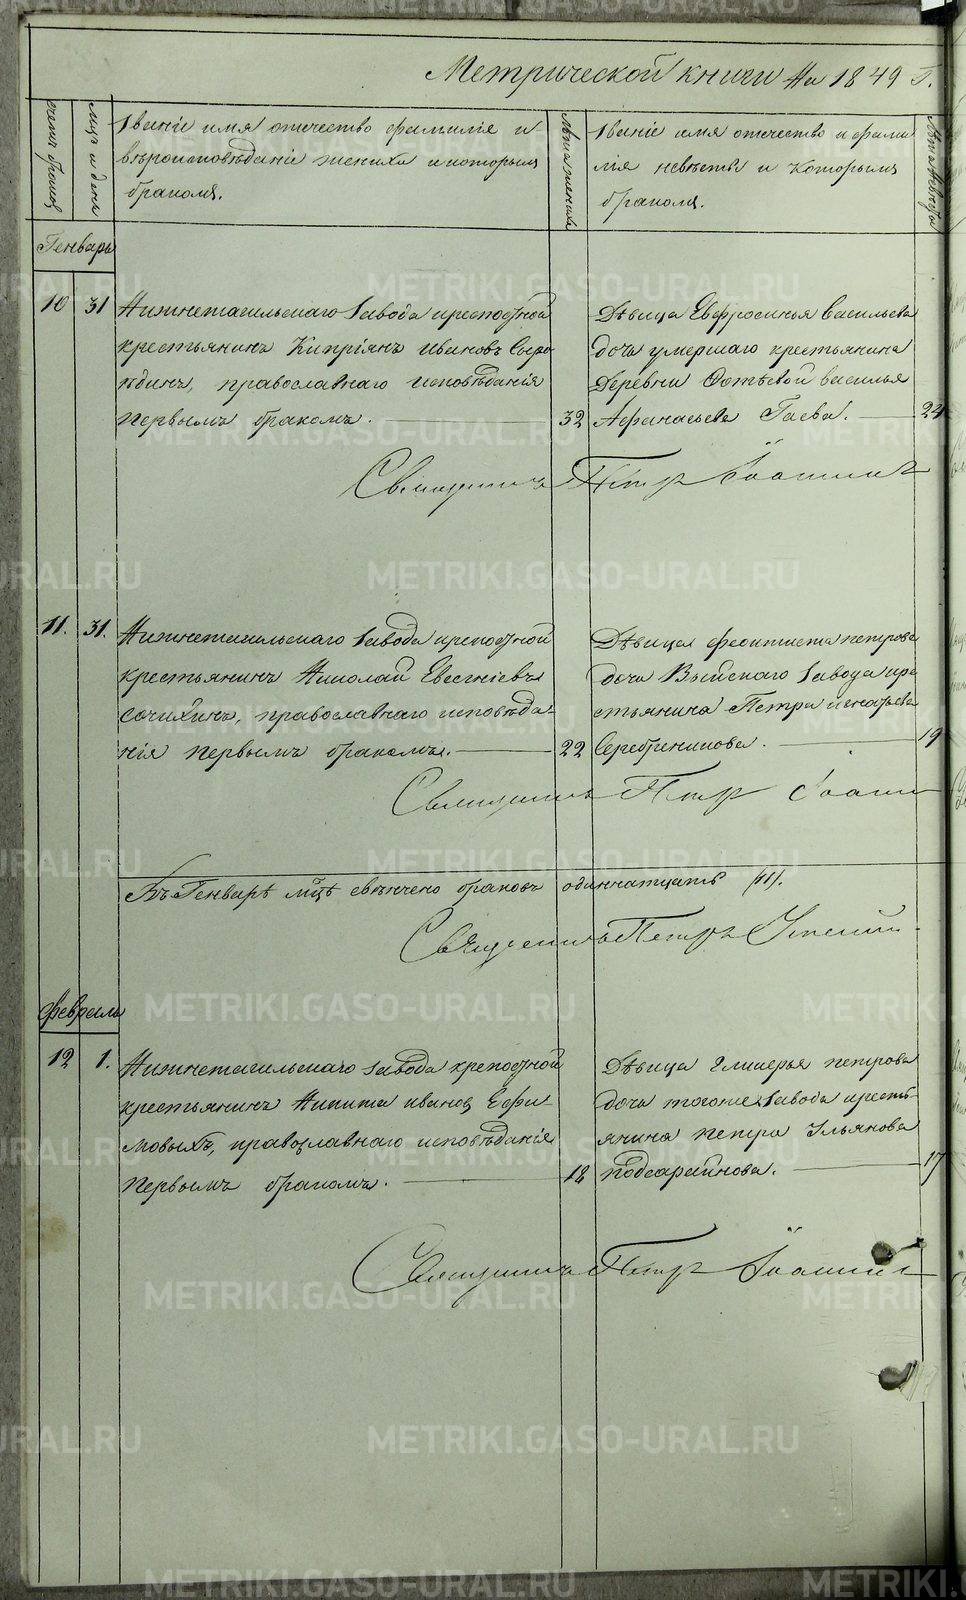 Метрической книги на 1849 Г.
счетъ браковъ
мѣц и день
Званіе имя отчество фамиліе и
вѣроисповѣданіе жениха и которымъ
бракомъ.
лѣта жениха
Званіе имя отчество и фами
лія невѣсты и которымъ
бракомъ.
лѣта невѣсты
Генварь
10 31 Нижнетагильскаго завода крепостной
крестьянинъ Кипріянъ Ивановъ
православнаго исповѣданія
первымъ бракомъ. 32
Дѣвица Евфросинья Васильева
дочь умершаго крестьянина
деревни василья
Афанасьева Гаева. 24
Священникъ Петръ
11. 31. Нижнетагильскаго завода крепостной
крестьянинъ Николай Евсегніевъ
Сочихинъ, православнаго исповѣда-
нія первымъ бракомъ. 22
Дѣвица феоктиста петрова
дочь Выйскаго завода кре
стьянина Петра игнатьева
Серебреникова. 19
Священникъ Петръ
Въ Генварѣ мцѣ свѣнчено браковъ одиннатцать (11).
Священникъ Петръ
февраль
12 1. Нижнетагильскаго завода крепостной
крестьянинъ Никита иванов Ефи
мовыхъ, православнаго исповѣданія
первымъ бракомъ. 18
Дѣвица Гликерья петрова
дочь тогоже завода кресть
янина петра Ульянова
подсарайнова. 17
Священникъ Петръ
METRIKI.GASO-URAL.RU